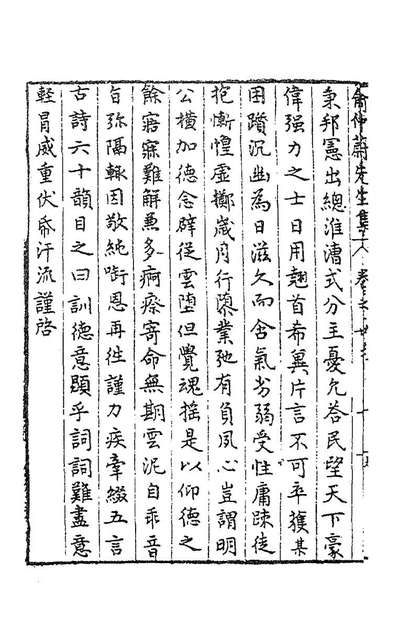 俞仲蔚先生集卷之
秉邦憲出總淮漕式分主憂允答民望天下豪
偉强力之士日用翹首希冀片言不可卒獲某
困躓沉幽為日滋久而含氣劣弱受性庸疎徒
抱慚惶虛擲歲月行隳業弛有負夙心豈謂明
公横加德念辟從雲墮但覺魂摇是以仰德之
餘寤寐難解蕙多痾瘵寄命無期雲泥自乖音
旨弥隔輙因敬純啣恩再徃謹力疾牽綴五言
古詩六十韻目之曰訓德意顕乎詞詞難盡意
輕冒威重伏帋汗流謹啓